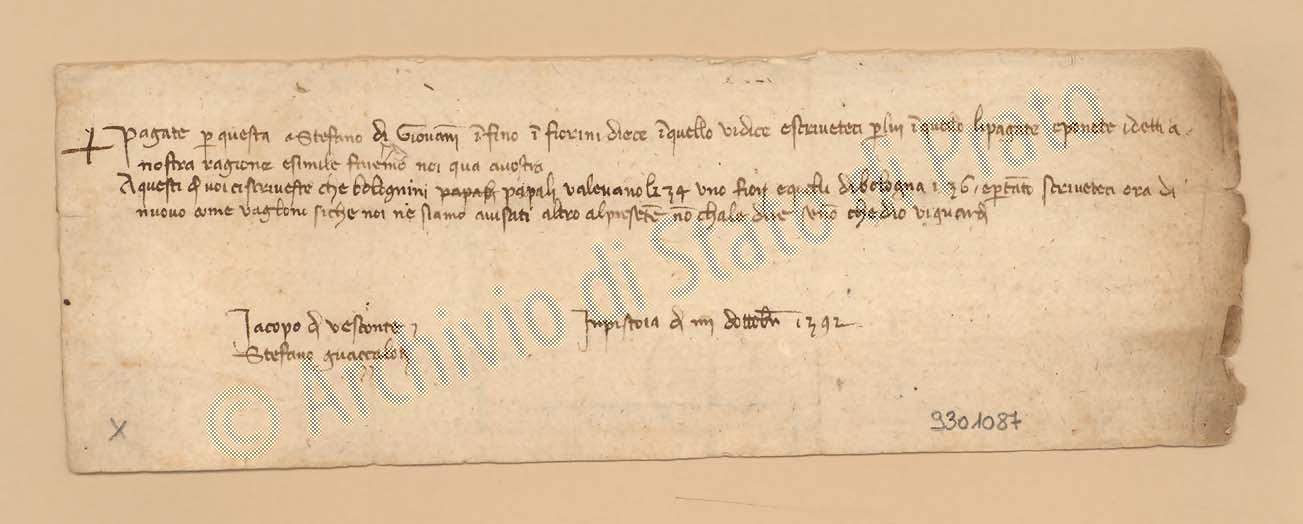 Pagate per questa a Stefano di Giovanni infino in fiorini diece in quello vi dice e scriveteci per lui in quello li pagate e ponete i detti a
nostra ragione e simile faremo noi qua a vostra
A questi dì voi ci scriveste che bolognini papali valevano 34 uno fior e quelli di bologna 36 e pertanto scriveteci ora di
nuovo come vagliono siche noi ne siamo avisati altro al presente non chale dire che dio vi guardi
Jacopo del Vesconte
Stefano Guazzaloti
In pistoia dì IIII d'ottobre 1392
X
9301087
© Archivio di Stato di Prato